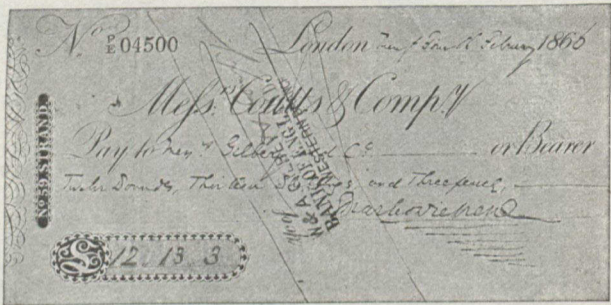 No. P/E 04500 London Twenty fourth February 1865
Messrs. Coutts & Compy
Pay to Messrs Gilbert and Co. or Bearer
Twelve Pounds, Thirteen Shillings and Threepence,
Charles Dickens
£ 12 13 3
No. 59, STRAND.
BANK OF ENGLAND
WESTERN BRANCH